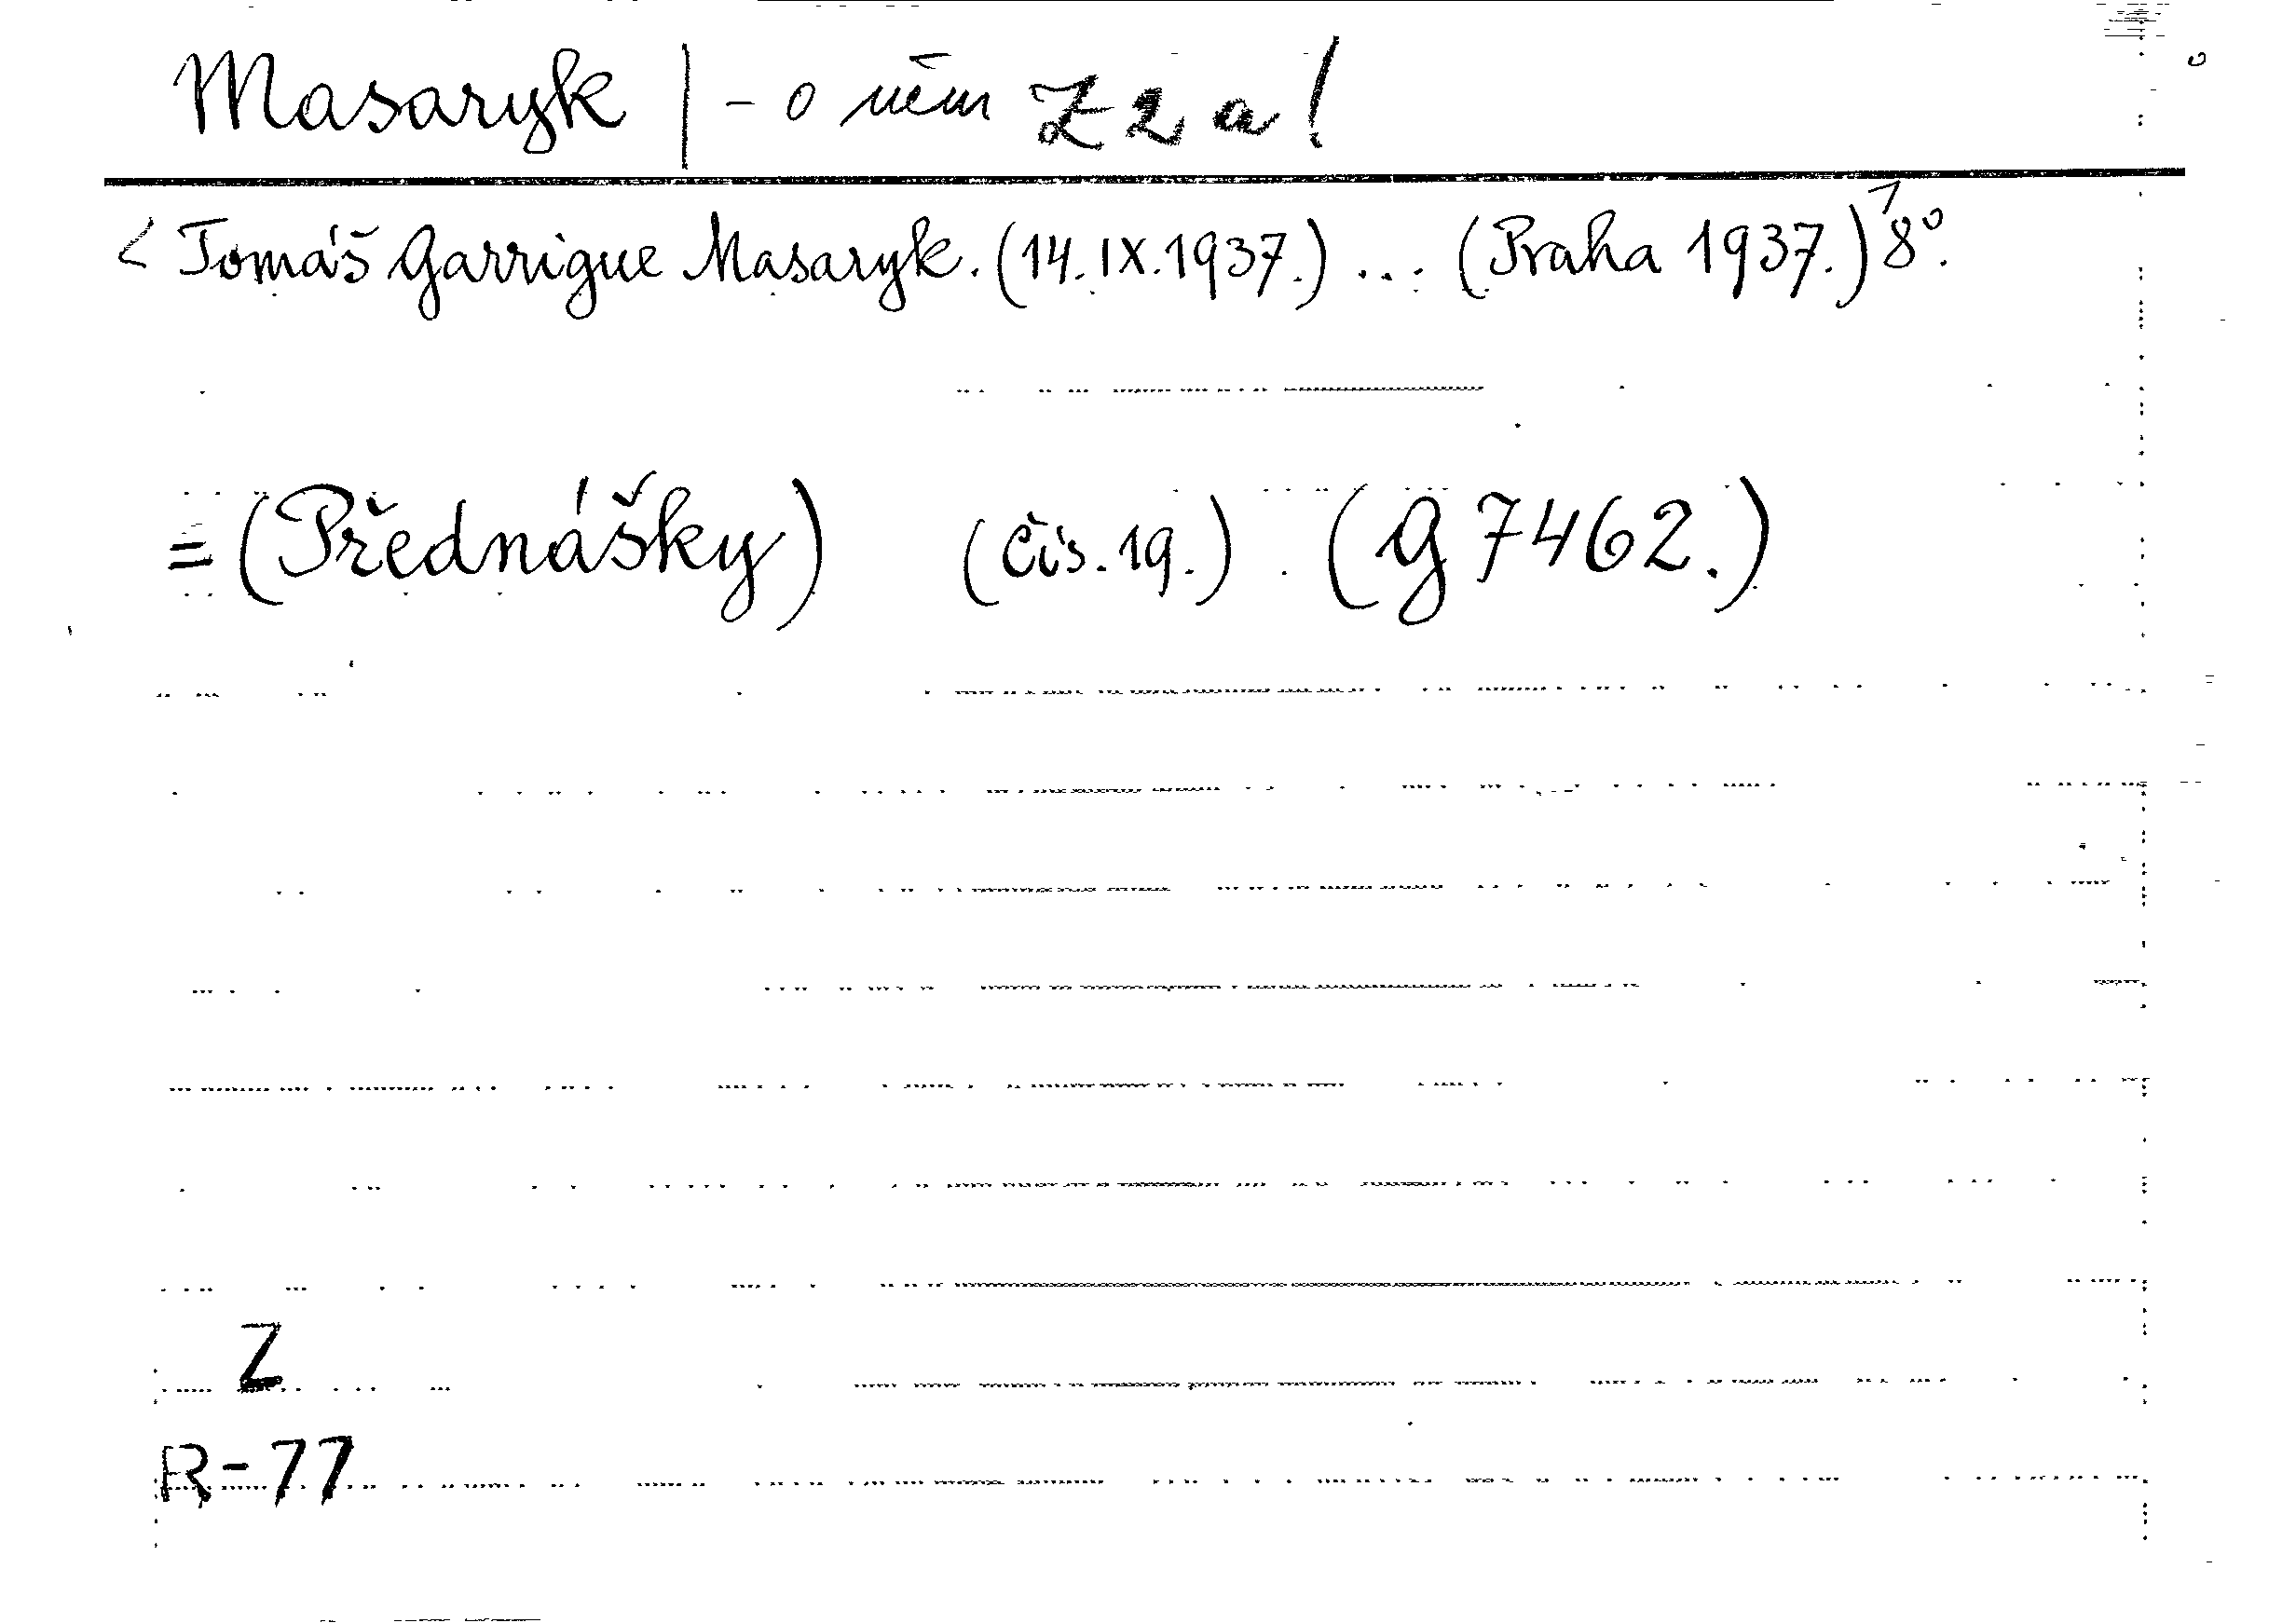 Masaryk | - o něm Z 2 a !
< Tomáš Garrigue Masaryk. (14. IX. 1937.) ... (Praha 1937.) 8°.
= (Přednášky) (Čís. 19.) (G 7462.)
Z
R-77